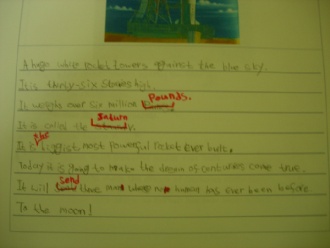 A huge white rocket towers against the blue sky.
It is thirty-six stories high.
It weighs over six million Pounds.
It is called the Saturn V.
It is the biggest, most powerful rocket ever built.
Today it is going to make the dream of centuries come true.
It will send three men where no human has ever been before
To the moon!